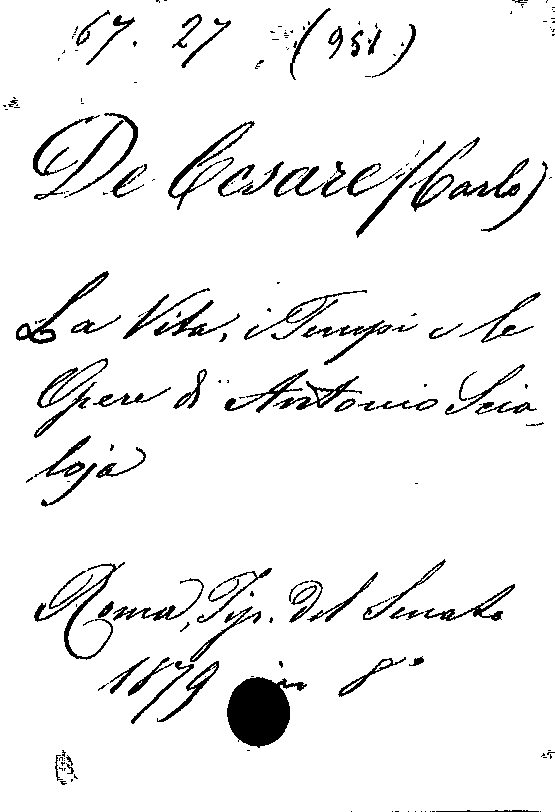 67. 27 (951)
De Cesare (Carlo)
La Vita, i Tempi e le
Opere di Antonio Scia-
loja
Roma, Tip. del Senato
1879 in 8°